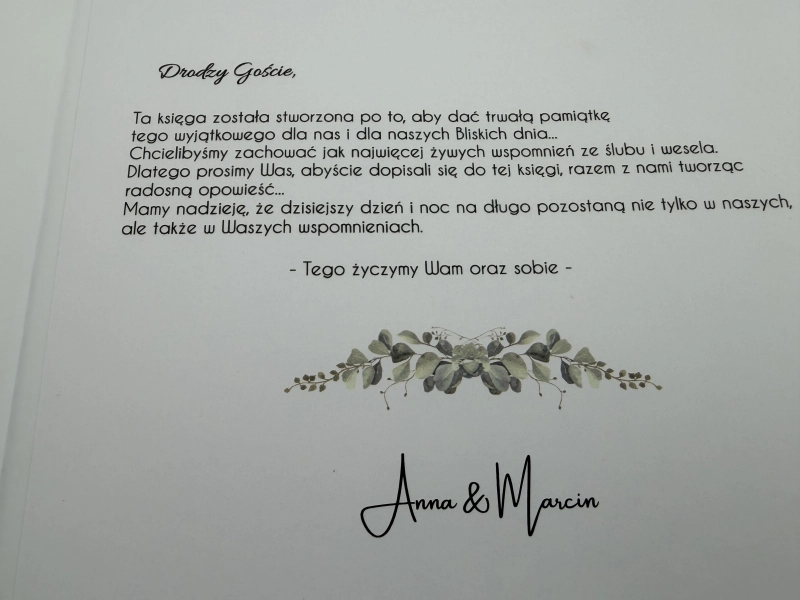 Drodzy Goście,
Ta księga została stworzona po to, aby dać trwałą pamiątkę
tego wyjątkowego dla nas i dla naszych Bliskich dnia...
Chcielibyśmy zachować jak najwięcej żywych wspomnień ze ślubu i wesela.
Dlatego prosimy Was, abyście dopisali się do tej księgi, razem z nami tworząc
radosną opowieść...
Mamy nadzieję, że dzisiejszy dzień i noc na długo pozostaną nie tylko w naszych,
ale także w Waszych wspomnieniach.
- Tego życzymy Wam oraz sobie -
Anna & Marcin